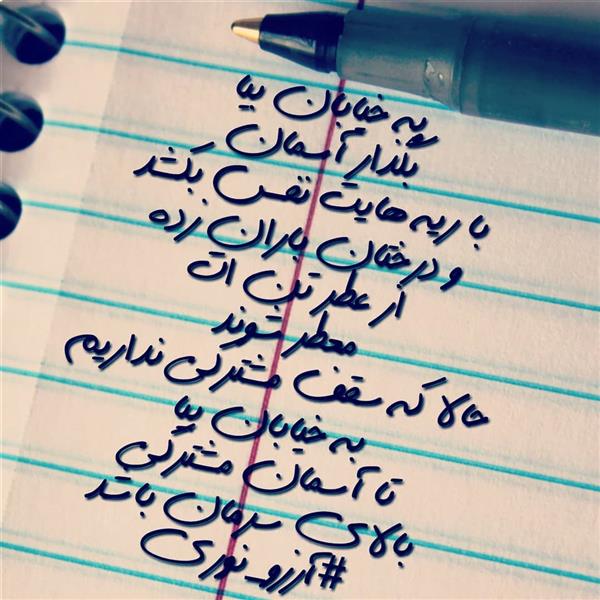 به خیابان بیا
بگذار آسمان
با ریه هایت نفس بکشد
و درختان باران زده
از عطر تن ات
معطر شوند
حالا که سقف مشترکی نداریم
به خیابان بیا
تا آسمان مشترکی
بالای سرمان باشد
#آرزو_نوری